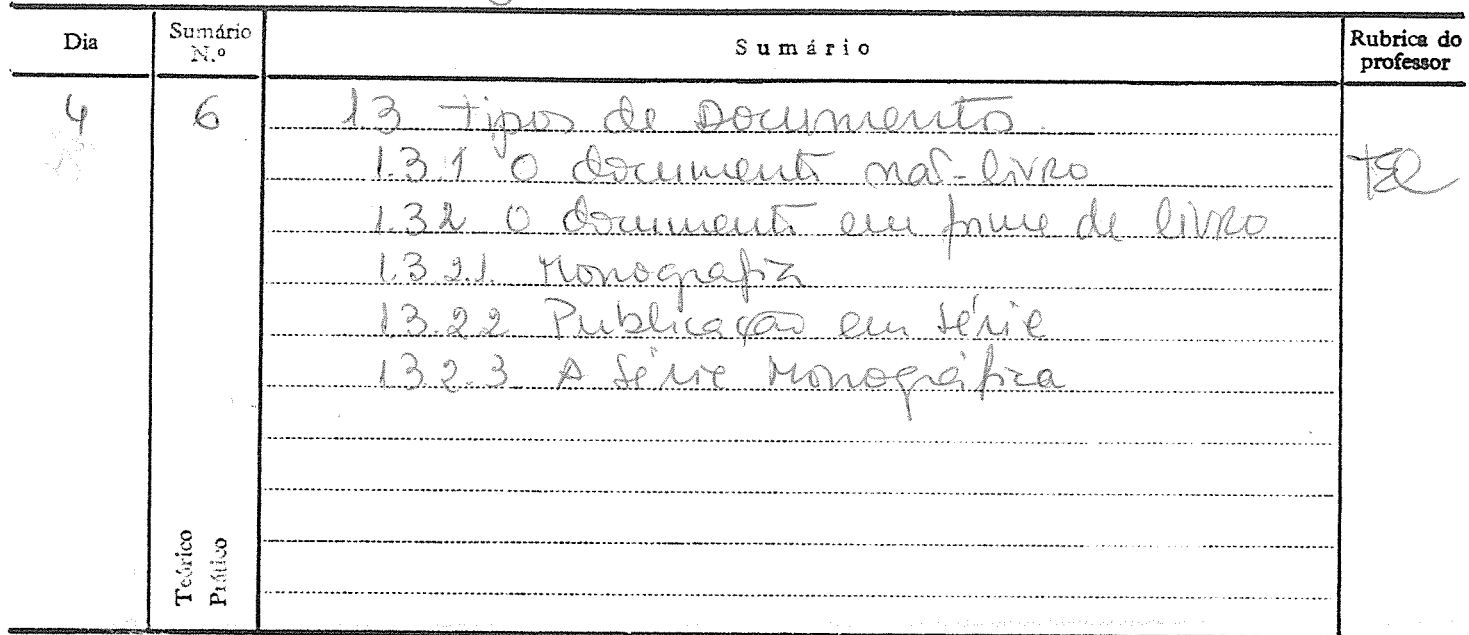 Dia Sumário N.º Sumário Rubrica do professor
4 6 1.3 Tipos de Documentos.
1.3.1 O documento não-livro
1.3.2 O documento em forma de livro
1.3.2.1. Monografia
1.3.2.2 Publicação em série
1.3.2.3 A Série Monográfica
Teórico
Prático